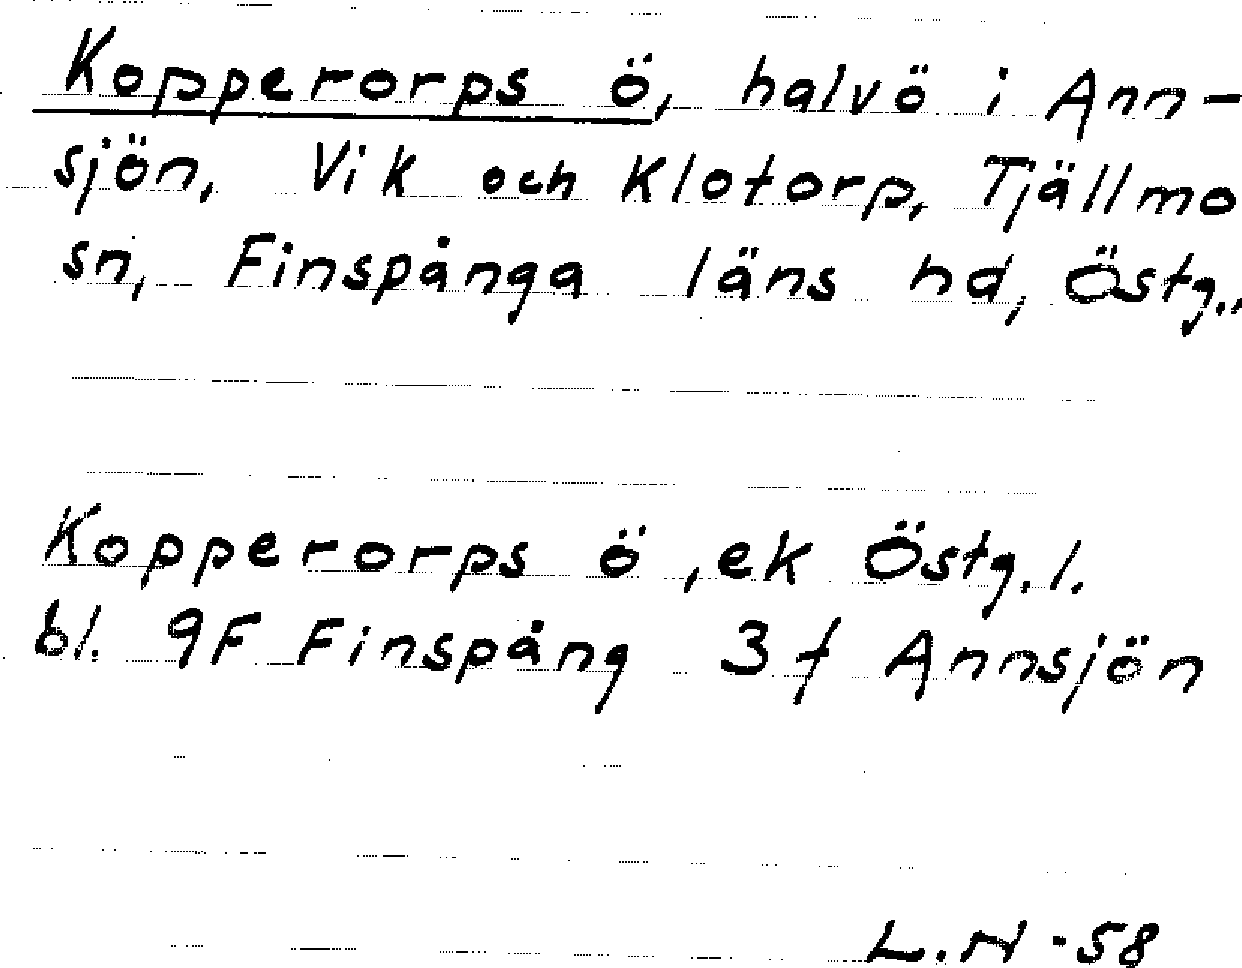 Kopperorps ö, halvö i Ann-
sjön, Vik och Klotorp, Tjällmo
sn, Finspånga läns hd, Östg..
Kopperorps ö, ek Östg.l.
bl. 9F Finspång 3f Annsjön
L.H -58